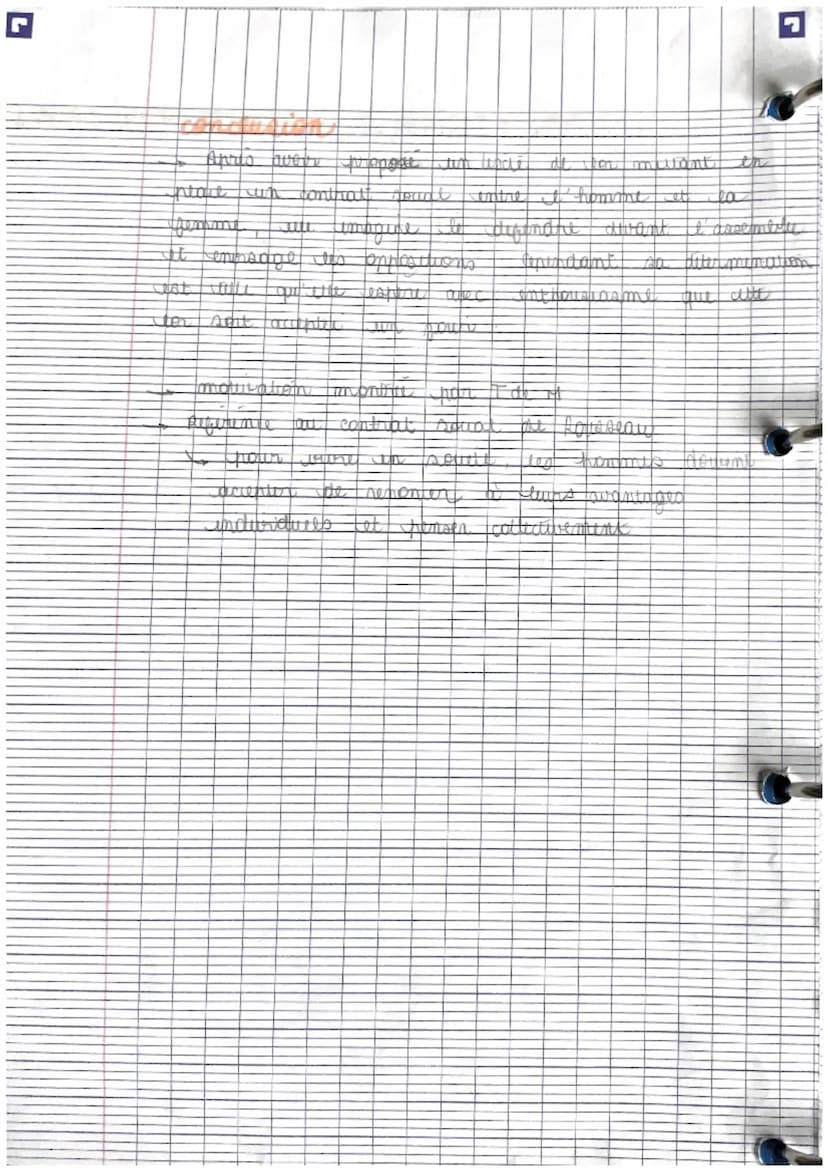 conclusion
→ Après avoir proposé un texte de loi mettant en
place un contrat social entre l'homme et la
femme, elle imagine le défendre devant l'assemblée
et envisage les oppositions cependant sa détermination
est telle qu'elle espère avec enthousiasme que cette
loi soit acceptée un jour
→ motivation montrée par T de M
→ Référence au contrat social de Rousseau
↳ pour vivre en société, les hommes doivent
accepter de renoncer à leurs avantages
individuels et penser collectivement